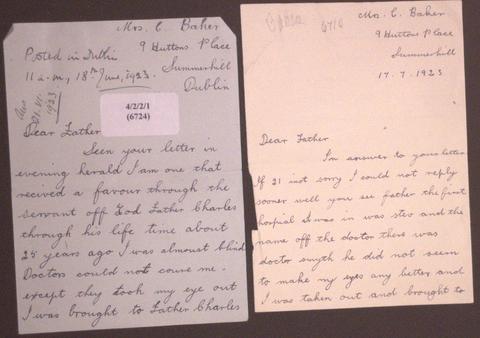 Mrs. C. Baker
9 Huttons Place
Summerhill
Dublin
Posted in Dublin
11 a.m., 18th June, 1923.
Ans
21. VI.
1923
4/2/2/1
(6724)
Dear Father
Seen your letter in
evening herald I am one that
recived a favour through the
servant off God Father Charles
through his life time about
25 years ago I was almoust blind
Doctors could not coure me.
except they took my eye out
I was brought to Father Charles
6710
Mrs. C. Baker
9 Huttons Place
Summerhill
17. 7. 1923
Dear Father
In answer to your letter
If 21 inst sorry I could not reply
sooner well you see father the first
hospital I was in was stev and the
name off the doctor there was
doctor smyth he did not seem
to make my eyes any better and
I was taken out and brought to